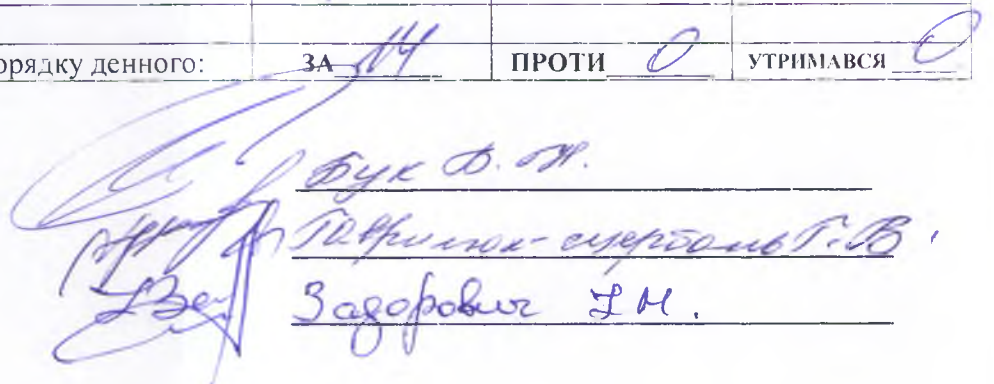 орядку денного: ЗА 14 ПРОТИ 0 УТРИМАВСЯ 0
Бук
Гаврилюк- Г.В.
Задорович І.М.